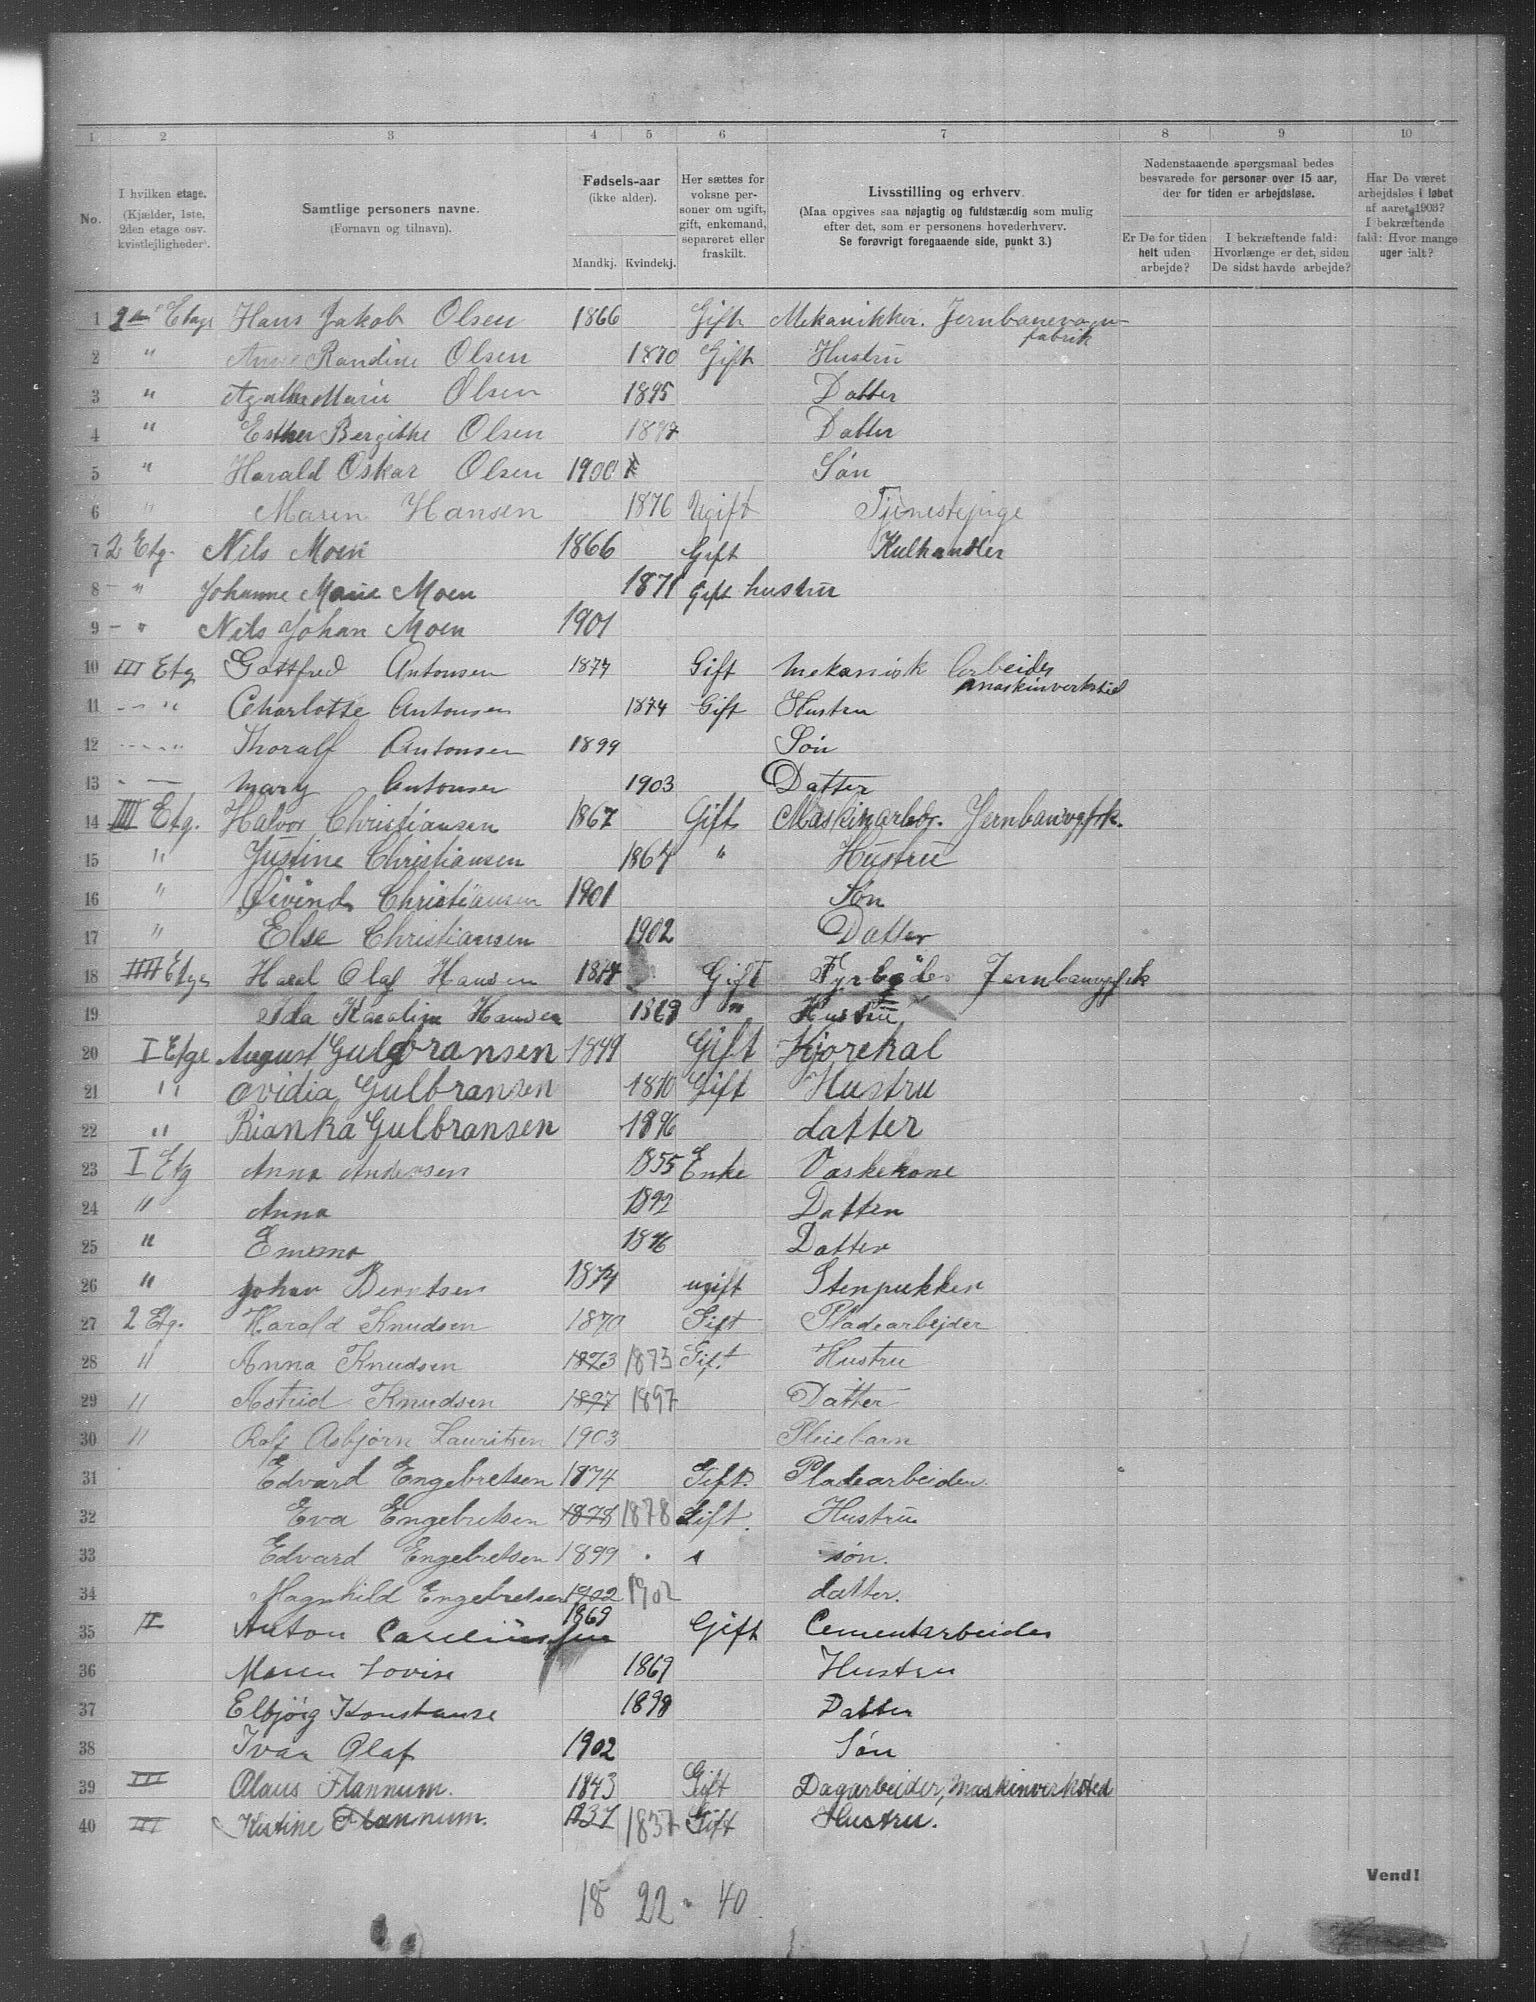 1 2 3 4 5 6 7 8 9 10
No.
I hvilken etage. (Kjælder, 1ste, 2den etage osv. kvistlejligheder).
Samtlige personers navne. (Fornavn og tilnavn).
Fødsels-aar (ikke alder). Mandkj. Kvindekj.
Her sættes for voksne personer om ugift, gift, enkemand, separeret eller fraskilt.
Livsstilling og erhverv. (Maa opgives saa nøjagtig og fuldstændig som mulig efter det, som er personens hovederhverv. Se forøvrigt foregaaende side, punkt 3.)
Nedenstaaende spørgsmaal bedes besvarede for personer over 15 aar, der for tiden er arbejdsløse.
Er De for tiden helt uden arbejde?
I bekræftende fald: Hvorlænge er det, siden De sidst havde arbejde?
Har De været arbejdsløs i løbet af aaret 1903? I bekræftende fald: Hvor mange uger ialt?
1 2den Etage Hans Jakob Olsen 1866 Gift Mekanikker. Jernbanevogn fabrik
2 " Anne Randine Olsen 1870 Gift Hustru
3 " Agathe Marie Olsen 1895 Datter
4 " Esther Bergithe Olsen 1897 Datter
5 " Harald Oskar Olsen 1900 Søn
6 " Maren Hansen 1876 Ugift Tjenestepige
7 2 Etg. Nils Moen 1866 Gift Kulhandler
8 - " Johanne Marie Moen 1871 Gift hustru
9 - " Nils Johan Moen 1901
10 III Etg Gottfred Antonsen 1874 Gift Mekanisk Arbeider Maskinverksted
11 - - " Charlotte Antonsen 1874 Gift Hustru
12 - - - " Thoralf Antonsen 1899 Søn
13 - — Mary Antonsen 1903 Datter
14 IIII Etg. Halvor Christiansen 1867 Gift Maskinarbdr. Jernbanvgfrk.
15 " Justine Christiansen 1864 " Hustru
16 " Øivind Christiansen 1901 Søn
17 " Else Christiansen 1902 Datter
18 IIII Etge Olaf Hansen Gift Fyrbøder Jernbanvgfrk
19 Ida Karoline Hansen 1869 " Hustru
20 I Etge August Gulbransen 1849 Gift Kjørekal
21 " Ovidia Gulbransen 1870 Gift Hustru
22 " Bianka Gulbransen 1896 datter
23 I Etg Anna Andersen 1855 Enke Vaskekone
24 " Anna 1892 Datter
25 " Emma 1896 Datter
26 " Johan Berntsen 1874 ugift Stenpukker
27 2 Etg. Harald Knudsen 1870 Gift Pladearbejder
28 " Anna Knudsen 1873 1873 Gift Hustru
29 " Astrid Knudsen 1897 1897 Datter
30 " Rolf Asbjørn Lauritsen 1903 Pleiebarn
31 Edvard Engebretsen 1874 Gift. Pladearbeider.
32 Eva Engebretsen 1878 1878 Gift. Hustru
33 Edvard Engebretsen 1899 søn.
34 Magnhild Engebretsen 1902 1902 datter.
35 II Anton 1869 Gift Cementarbeider
36 Maren Lovise 1869 Hustru
37 Elbjørg Konstanse 1898 Datter
38 Ivar Olaf 1902 Søn
39 III Olaus Flannum. 1843 Gift Dagarbeider, Maskinverksted
40 III Kistine Flannum. 1837 1837 Gift Hustru.
Vend!
18 22 - 40